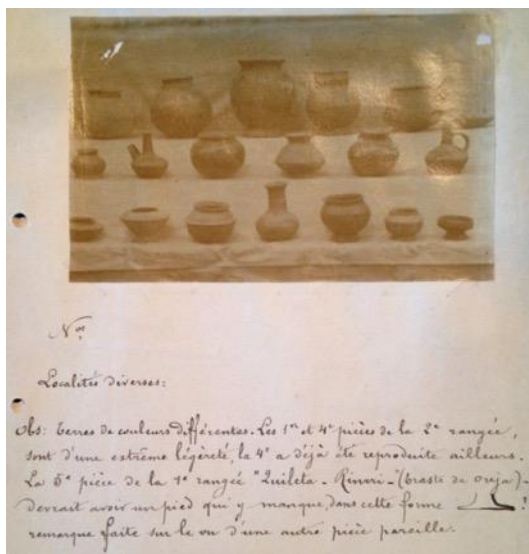 Nos
Localités diverses:
Obs: Terres de couleurs différentes. Les 1re et 4e pièces de la 2e rangée,
sont d'une extrême légèreté, la 4e a déjà été reproduite ailleurs.
La 5e pièce de la 1e rangée "Quileta - Rinri-"(traste de oreja)-
devrait avoir un pied qui y manque, dans cette forme :
remarque faite sur le vu d'une autre pièce pareille.